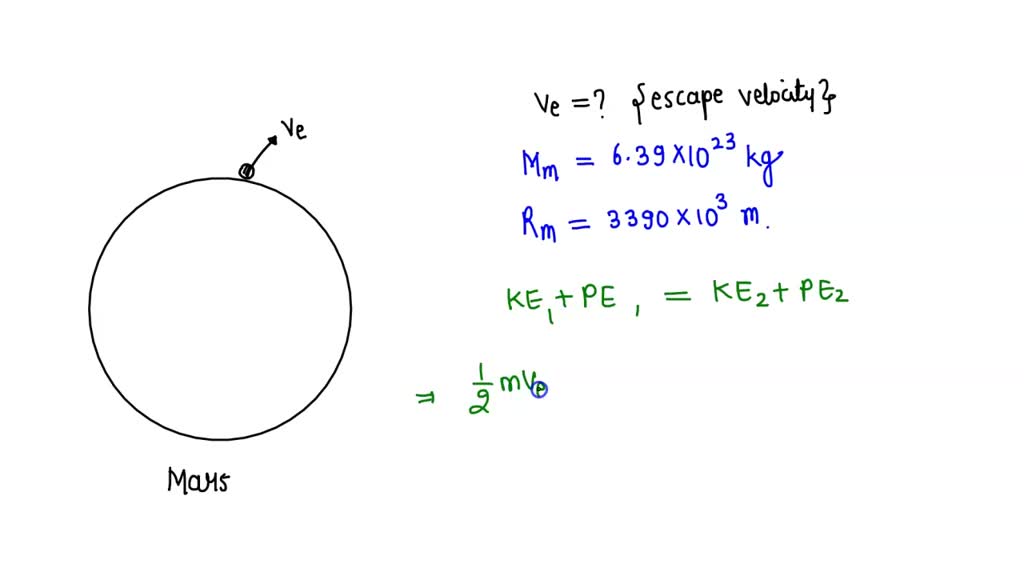 Ve
Ve = ? {escape velocity}
Mm = 6.39 × 10²³ kg
Rm = 3390 × 10³ m.
KE₁ + PE₁ = KE₂ + PE₂
⇒ 1/2 mVe
Mars